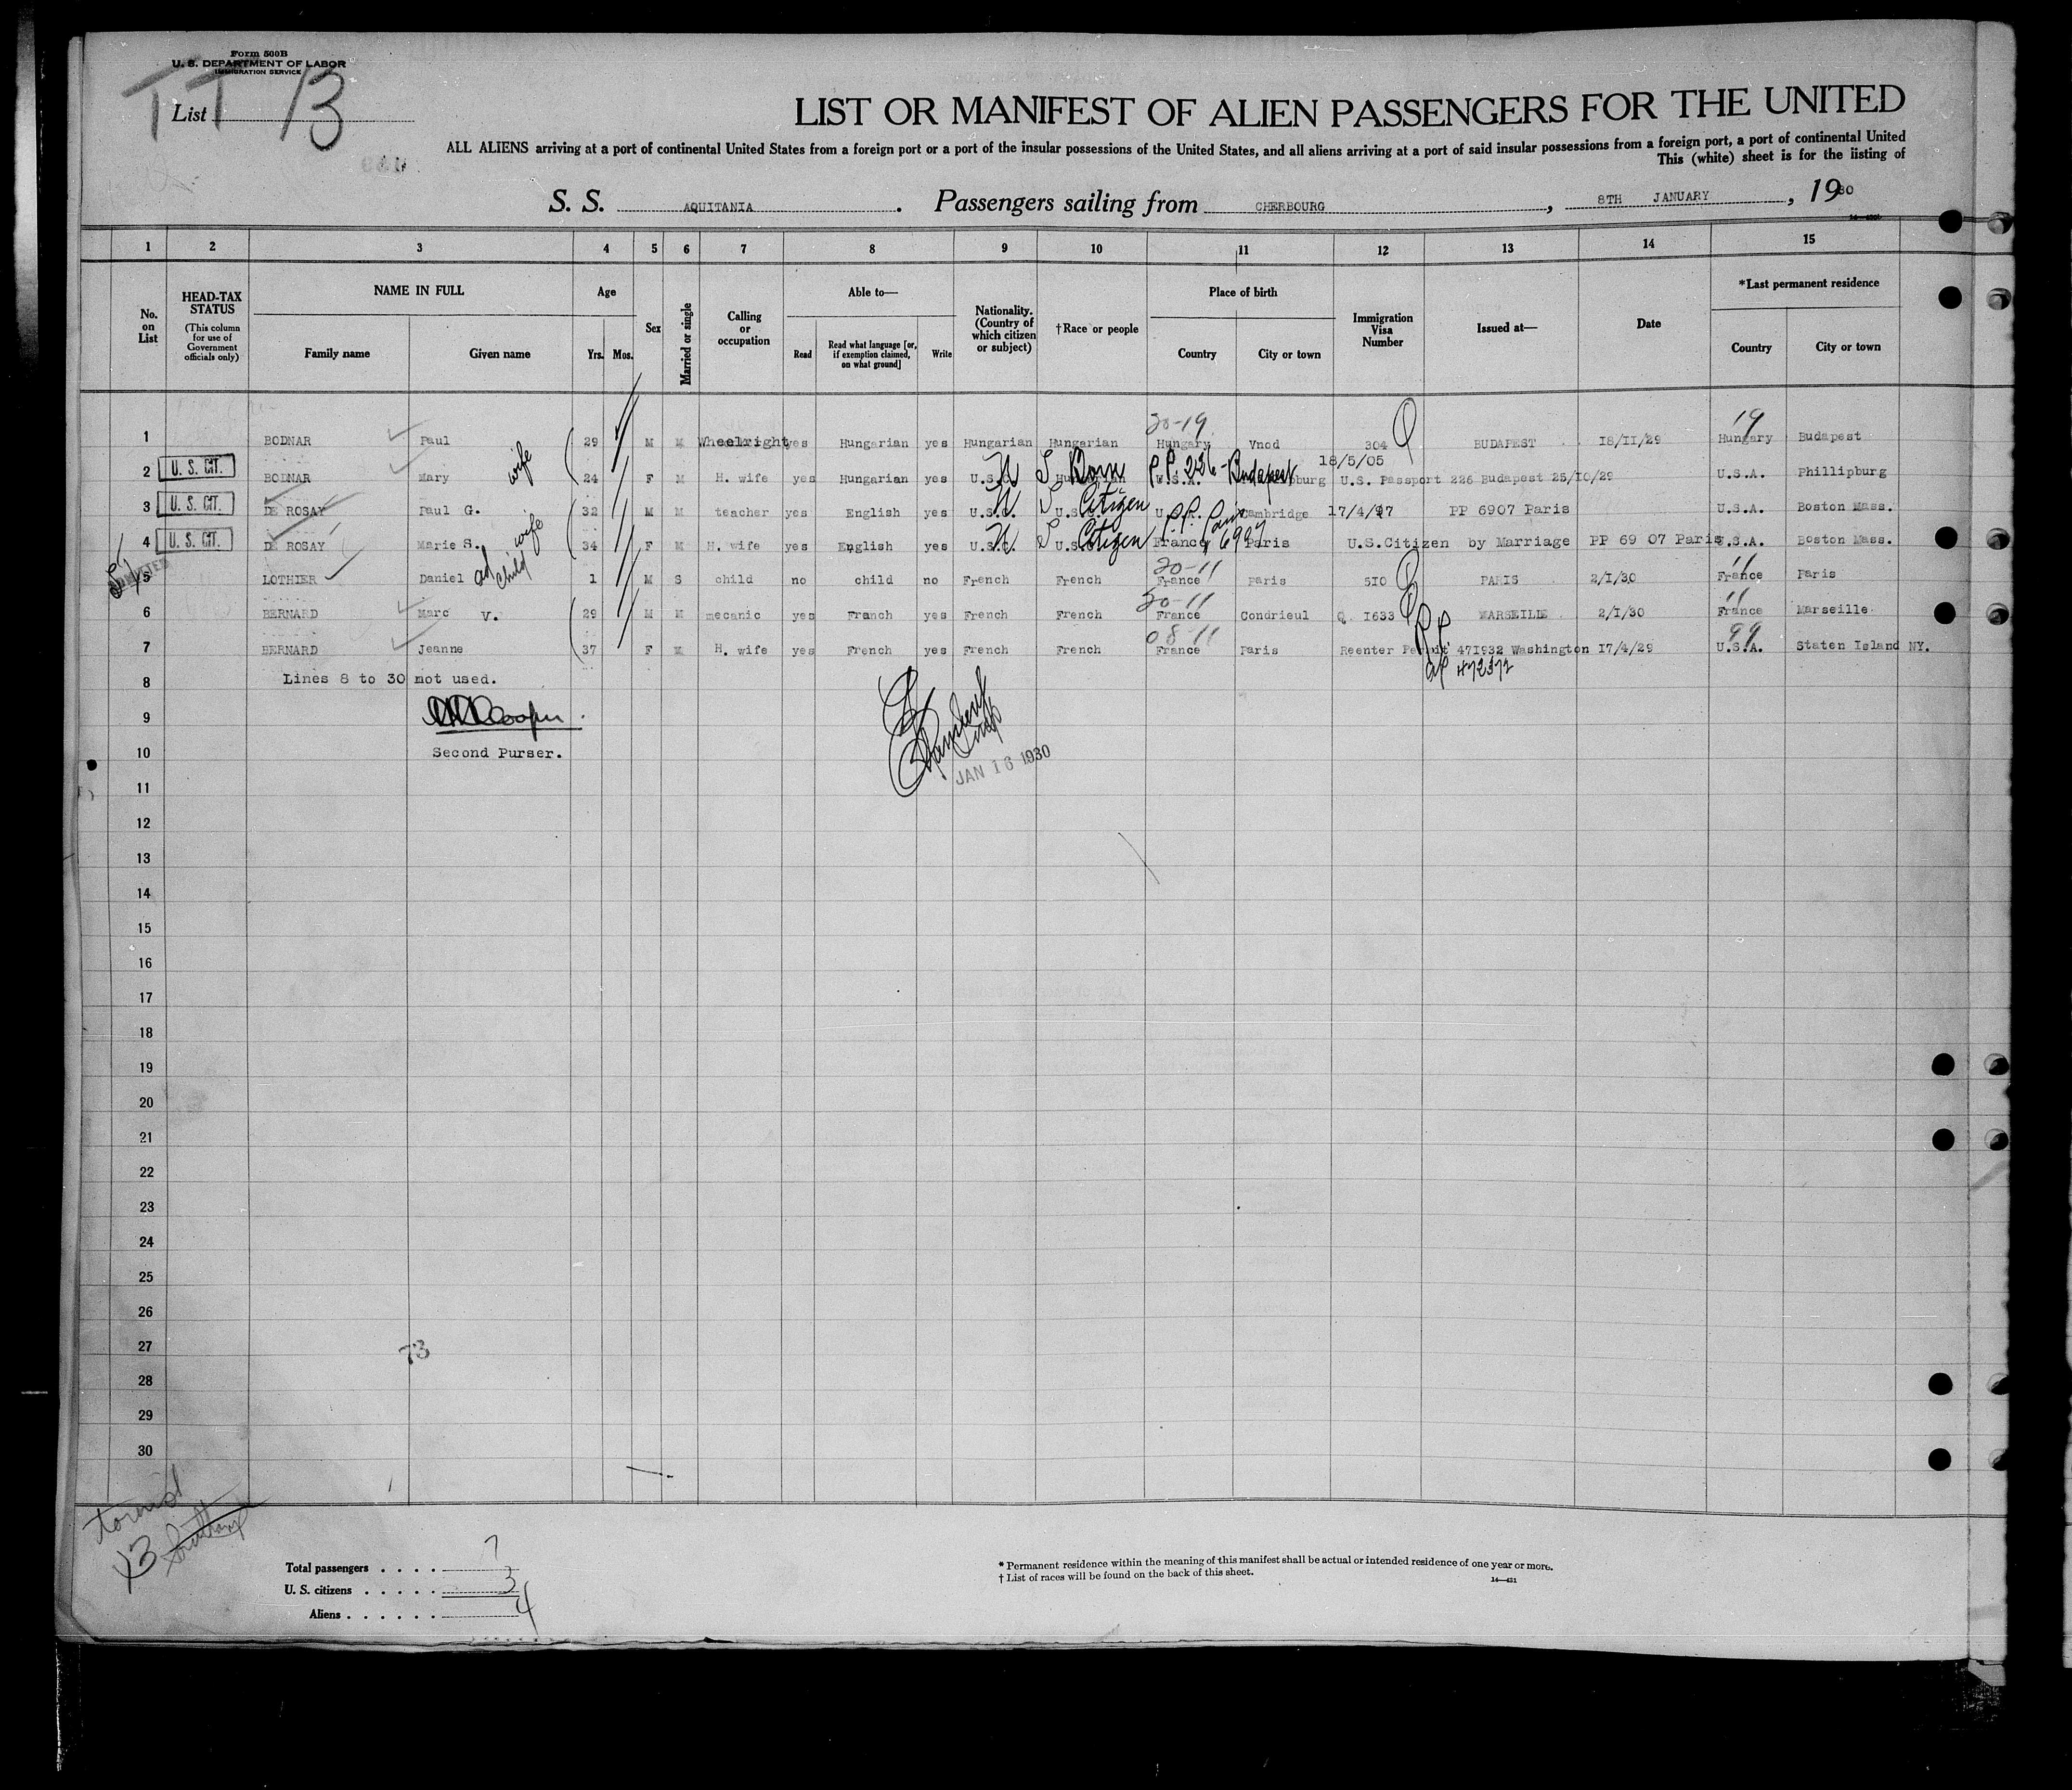 Form 500B
U. S. DEPARTMENT OF LABOR
IMMIGRATION SERVICE
TT 13
List
LIST OR MANIFEST OF ALIEN PASSENGERS FOR THE UNITED
ALL ALIENS arriving at a port of continental United States from a foreign port or a port of the insular possessions of the United States, and all aliens arriving at a port of said insular possessions from a foreign port, a port of continental United
This (white) sheet is for the listing of
S. S. AQUITANIA . Passengers sailing from CHERBOURG , 8TH JANUARY , 1930
1 2 3 4 5 6 7 8 9 10 11 12 13 14 15
No. on List
HEAD-TAX STATUS
(This column for use of Government officials only)
NAME IN FULL
Family name Given name
Age
Yrs. Mos.
Sex
Married or single
Calling or occupation
Able to—
Read
Read what language [or, if exemption claimed, on what ground]
Write
Nationality. (Country of which citizen or subject)
†Race or people
Place of birth
Country City or town
Immigration Visa Number
Issued at—
Date
*Last permanent residence
Country City or town
20-19 19
1 BODNAR Paul 29 M M Wheelright yes Hungarian yes Hungarian Hungarian Hungary Vnod 304 BUDAPEST 18/11/29 Hungary Budapest
18/5/05
2 U. S. CIT. BODNAR Mary wife 24 F M H. wife yes Hungarian yes U.S. Born P.P. 226 - Budapest U.S. Passport 226 Budapest 25/10/29 U.S.A. Phillipburg
3 U. S. CIT. DE ROSAY Paul G. 32 M M teacher yes English yes U.S. Citizen P.P. Paris Cambridge 17/4/97 PP 6907 Paris U.S.A. Boston Mass.
4 U. S. CIT. DE ROSAY Marie S. wife 34 F M H. wife yes English yes U.S. Citizen France 6907 Paris U.S.Citizen by Marriage PP 69 07 Paris U.S.A. Boston Mass.
20-11 11
5 ADMITTED LOTHIER Daniel ad child 1 M S child no child no French French France Paris 510 PARIS 2/1/30 France Paris
20-11 11
6 BERNARD Marc V. 29 M M mecanic yes Franch yes French French France Condrieul Q 1633 MARSEILLE 2/1/30 France Marseille
08-11 P.P. 99
7 BERNARD Jeanne 37 F M H. wife yes French yes French French France Paris Reenter Permit 471932 Washington 17/4/29 U.S.A. Staten Island NY.
472372
8 Lines 8 to 30 not used.
9
10 Second Purser.
JAN 16 1930
11
12
13
14
15
16
17
18
19
20
21
22
23
24
25
26
27
73
28
29
30
13
Total passengers . . . . 7
U. S. citizens . . . . . 3
Aliens . . . . . . 4
* Permanent residence within the meaning of this manifest shall be actual or intended residence of one year or more.
† List of races will be found on the back of this sheet.
14—431